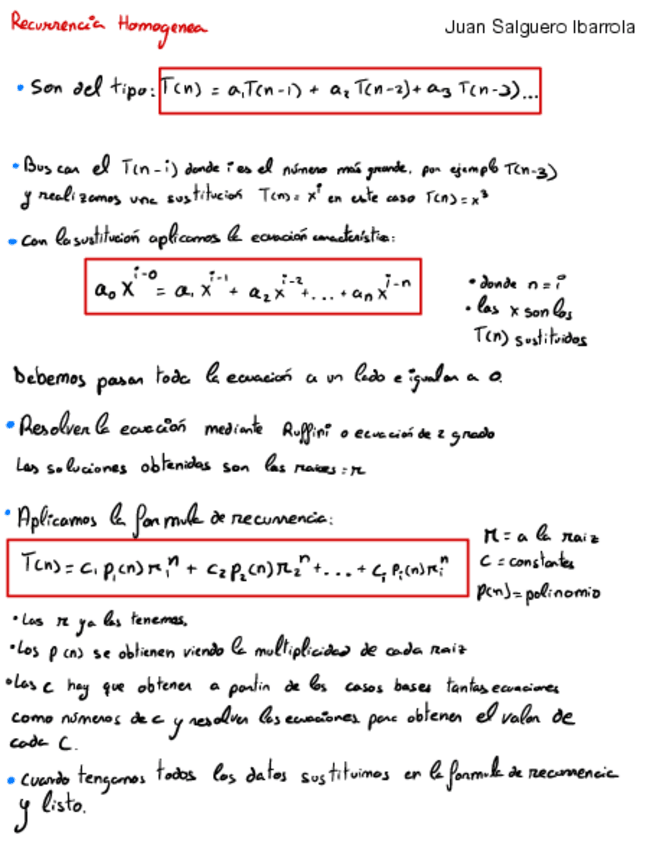 Recurrencia Homogenea
Juan Salguero Ibarrola
• Son del tipo: T(n) = a₁T(n-1) + a₂ T(n-2) + a₃ T(n-3)...
• Buscan el T(n-i) donde i es el número más grande, por ejemplo T(n-3)
y realizamos una sustitución T(n) = xⁱ en este caso T(n) = x³
• Con la sustitución aplicamos la ecuación característica:
a₀ x^(i-0) = a₁ x^(i-1) + a₂ x^(i-2) + ... + aₙ x^(i-n)
• donde n = i
• las x son los
T(n) sustituidos
Debemos pasar toda la ecuación a un lado e igualar a 0.
• Resolver la ecuación mediante Ruffini o ecuación de 2 grado
Las soluciones obtenidas son las raices = r
• Aplicamos la formula de recurrencia:
T(n) = c₁ p₁(n) r₁ⁿ + c₂ p₂(n) r₂ⁿ + ... + cᵢ pᵢ(n) rᵢⁿ
r = a la raiz
C = constantes
p(n) = polinomio
• Las r ya las tenemos.
• Los p(n) se obtienen viendo la multiplicidad de cada raiz
• Las c hay que obtener a partir de los casos bases tantas ecuaciones
como números de c y resolver las ecuaciones para obtener el valor de
cada C.
• Cuando tengamos todos los datos sustituimos en la formula de recurrencia
y listo.